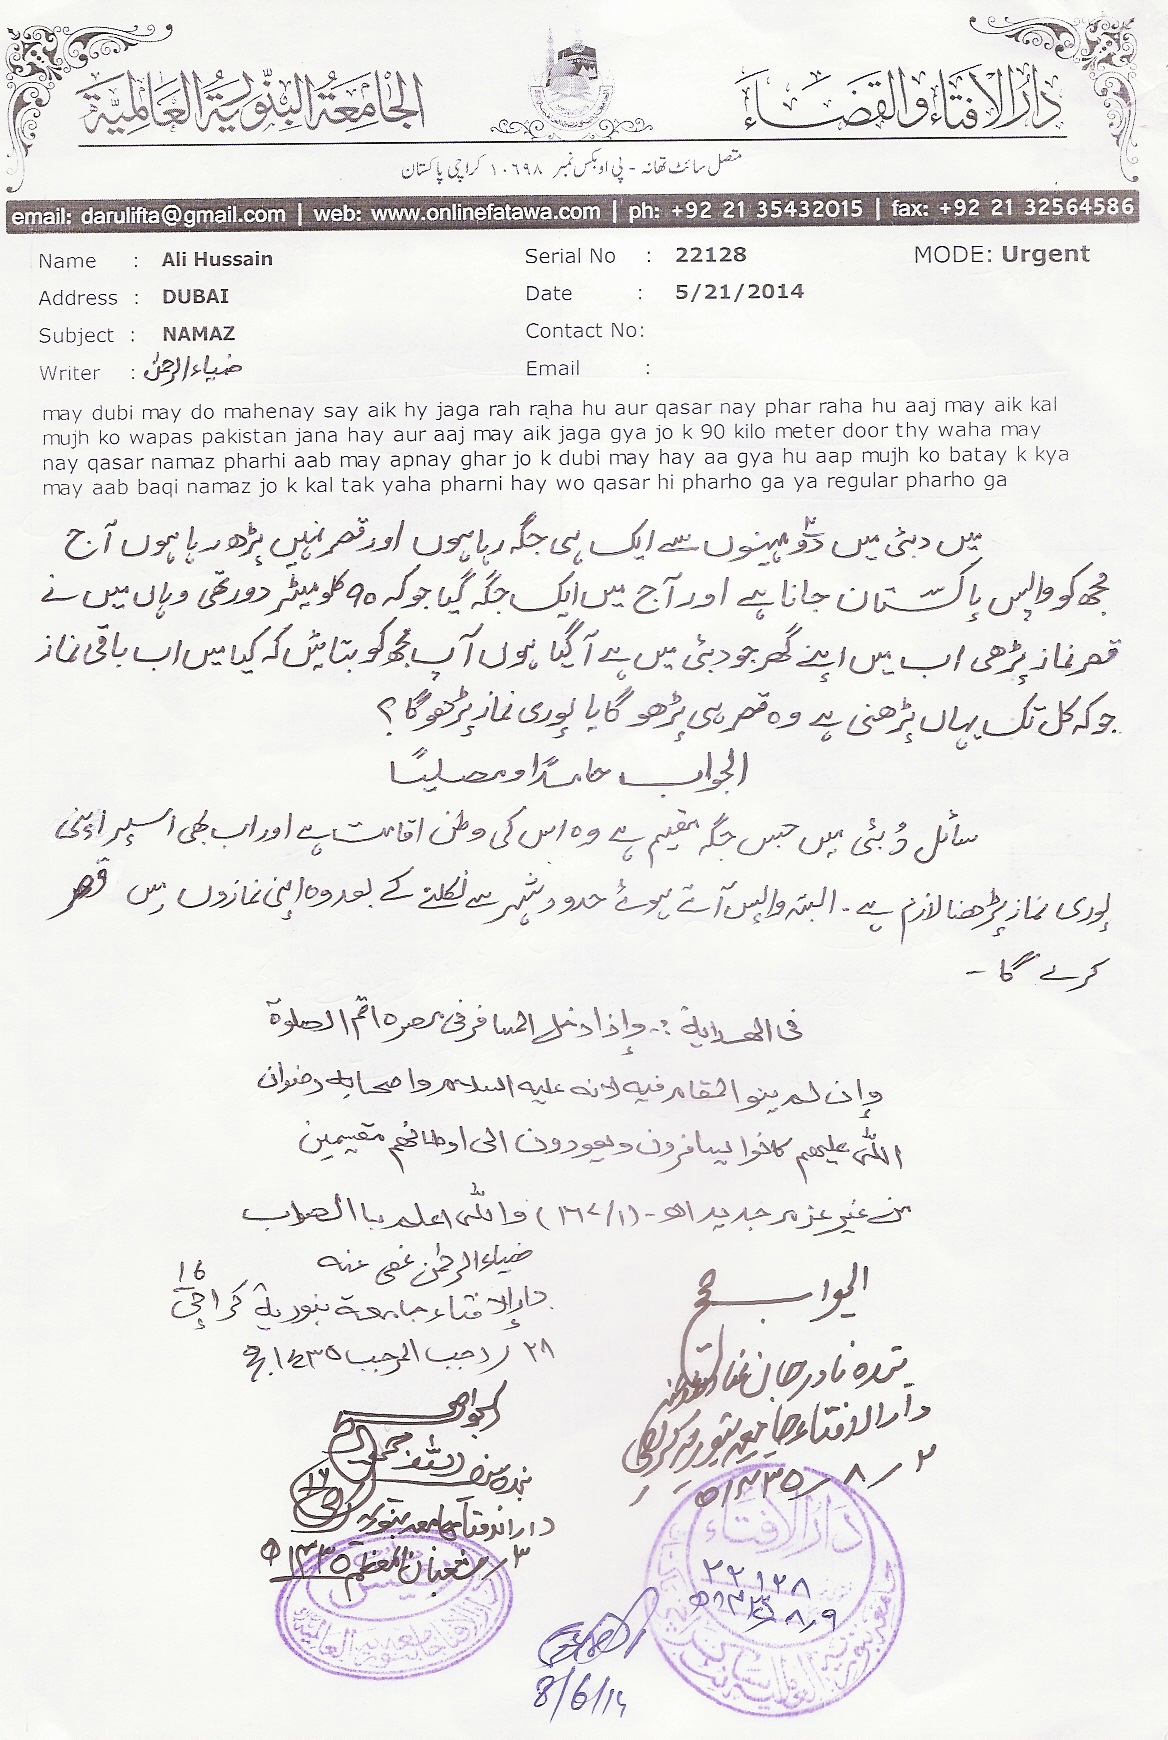 دار الافتاء والقضاء
الجامعة البنورية العالمية
متصل سائٹ تھانہ - پی او بکس نمبر ۱۰۶۹۸ کراچی پاکستان
email: darulifta@gmail.com | web: www.onlinefatawa.com | ph: +92 21 35432015 | fax: +92 21 32564586
Name : Ali Hussain Serial No : 22128 MODE: Urgent
Address : DUBAI Date : 5/21/2014
Subject : NAMAZ Contact No:
Writer : ضیاء الرحمٰن Email :
may dubi may do mahenay say aik hy jaga rah raha hu aur qasar nay phar raha hu aaj may aik kal
mujh ko wapas pakistan jana hay aur aaj may aik jaga gya jo k 90 kilo meter door thy waha may
nay qasar namaz pharhi aab may apnay ghar jo k dubi may hay aa gya hu aap mujh ko batay k kya
may aab baqi namaz jo k kal tak yaha pharni hay wo qasar hi pharho ga ya regular pharho ga
میں دبئی میں دو مہینوں سے ایک ہی جگہ رہا ہوں اور قصر نہیں پڑھ رہا ہوں آج
مجھ کو واپس پاکستان جانا ہے اور آج میں ایک جگہ گیا جو کہ ۹۰ کلو میٹر دور تھی وہاں میں نے
قصر نماز پڑھی اب میں اپنے گھر جو دبئی میں ہے آگیا ہوں آپ مجھ کو بتائیں کہ کیا میں اب باقی نماز
جو کہ کل تک یہاں پڑھنی ہے وہ قصر ہی پڑھو گا یا پوری نماز پڑھو گا ؟
الجواب حامدًا ومصلیًا
سائل دُبئی میں جس جگہ مقیم ہے وہ اس کی وطن اقامت ہے اور اب بھی اسپر اپنی
پوری نماز پڑھنا لازم ہے ۔ البتہ واپس آتے ہوئے حدود شہر سے نکلنے کے بعد وہ اپنی نمازوں میں قصر
کرے گا ۔
فی الهدایة :. وإذا دخل المسافر فی مصره اتم الصلوة
وإن لم ینو المقام فیه لانه علیه السلام واصحابه رضوان
اللّٰه علیهم کانوا یسافرون ویعودون الی اوطانهم مقیمین
من غیر عزم جدید اھ ۔ (۱/۱۶۷) واللّٰه اعلم بالصواب
ضیاء الرحمٰن عفی عنہ
دار الافتاء جامعہ بنوریہ کراچی 16
۲۸ / رجب المرجب ۱۴۳۵ھ
الجواب صحیح
بندہ نادر جان
دار الافتاء جامعہ بنوریہ کراچی
۲ / ۸ / ۱۴۳۵ھ
الجواب صحیح
بندہ
دار الافتاء جامعہ بنوریہ
۳ / شعبان المعظم ۱۴۳۵ھ
دار الافتاء
۲۲۱۲۸
8/6/14